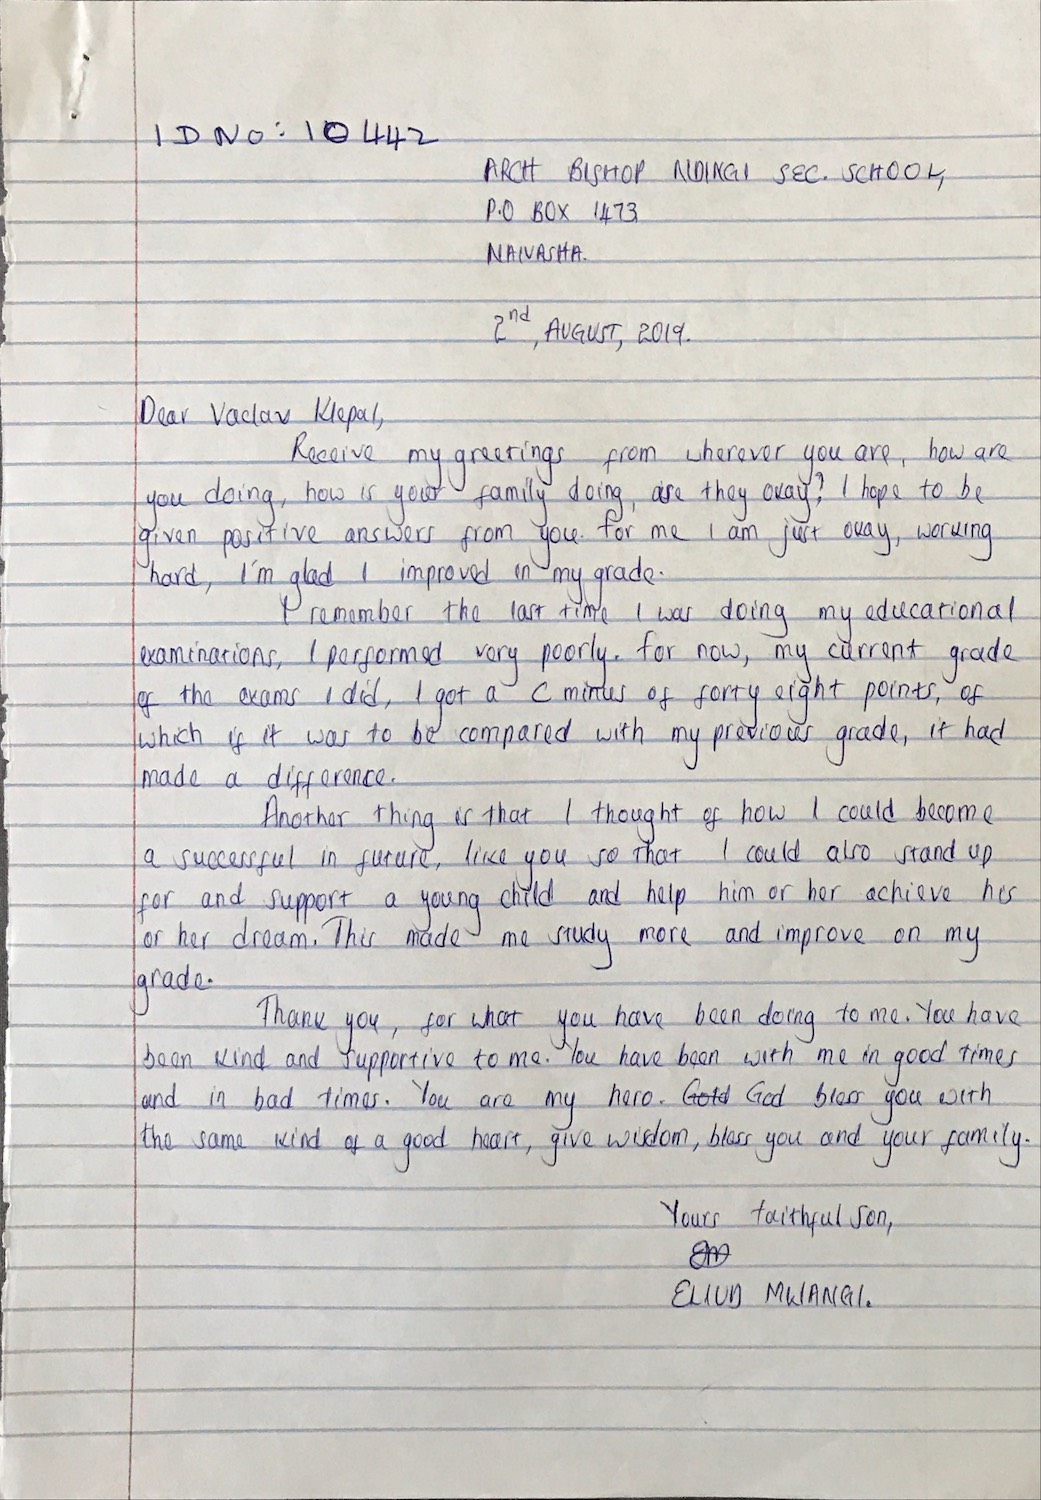 ID NO: 10442
ARCH BISHOP NDINGI SEC. SCHOOL,
P.O BOX 1473
NAIVASHA.
2nd, AUGUST, 2019.
Dear Vaclav Klepal,
Receive my greetings from wherever you are, how are
you doing, how is your family doing, are they okay? I hope to be
given positive answers from you. For me I am just okay, working
hard, I'm glad I improved in my grade.
I remember the last time I was doing my educational
examinations, I performed very poorly. For now, my current grade
of the exams I did, I got a C minus of forty eight points, of
which if it was to be compared with my previous grade, it had
made a difference.
Another thing is that I thought of how I could become
a successful in future, like you so that I could also stand up
for and support a young child and help him or her achieve his
or her dream. This made me study more and improve on my
grade.
Thank you, for what you have been doing to me. You have
been kind and supportive to me. You have been with me in good times
and in bad times. You are my hero. Gold God bless you with
the same kind of a good heart, give wisdom, bless you and your family.
Yours faithful son,
EM
ELIUD MWANGI.